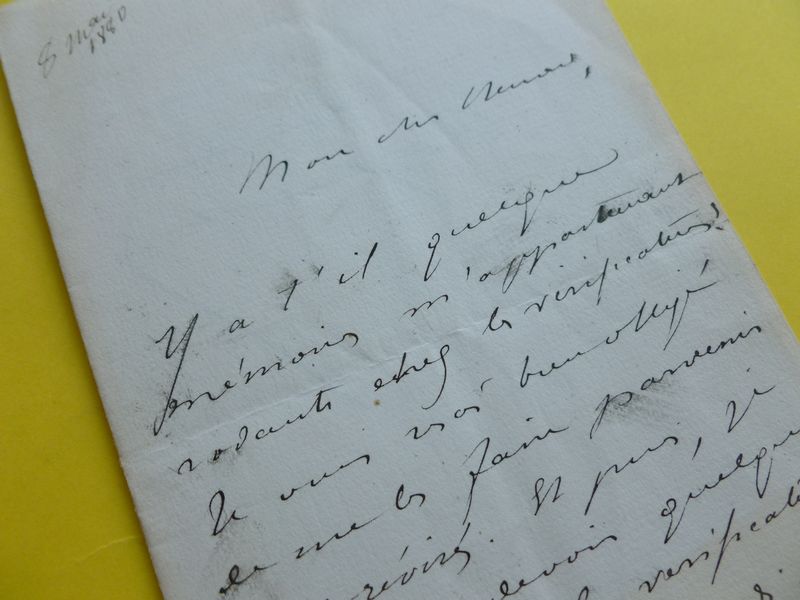 8 Mai
1880
Mon cher
Y a t'il quelque
mémoires m'appartenant
rodants chez les vérificateurs?
Je vous serai bien obligé
de me les faire parvenir
révisé. Et puis, je
devoir quelque